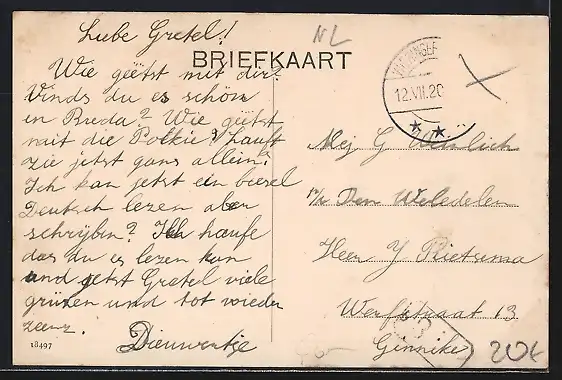 Lube Gretel!
NL
BRIEFKAART
Wie geëtst mit dir?
Vinds du es schöm
in Breda? Wie geëtst
mit die Polkie? hauft
zie jetst gans allein?
Ich kan jetst ein biesel
Deutsch lezen aber
schrijben? Ich haufe
das du es lezen kan
und jetst Gretel viele
grüzen und tot wieder
zeenz.
Dieuwertje
18497
12.VII.20
Mej G
p/a Den Weledelen
Heer Y Rietsema
Werfstraat 13
Ginneken
20k